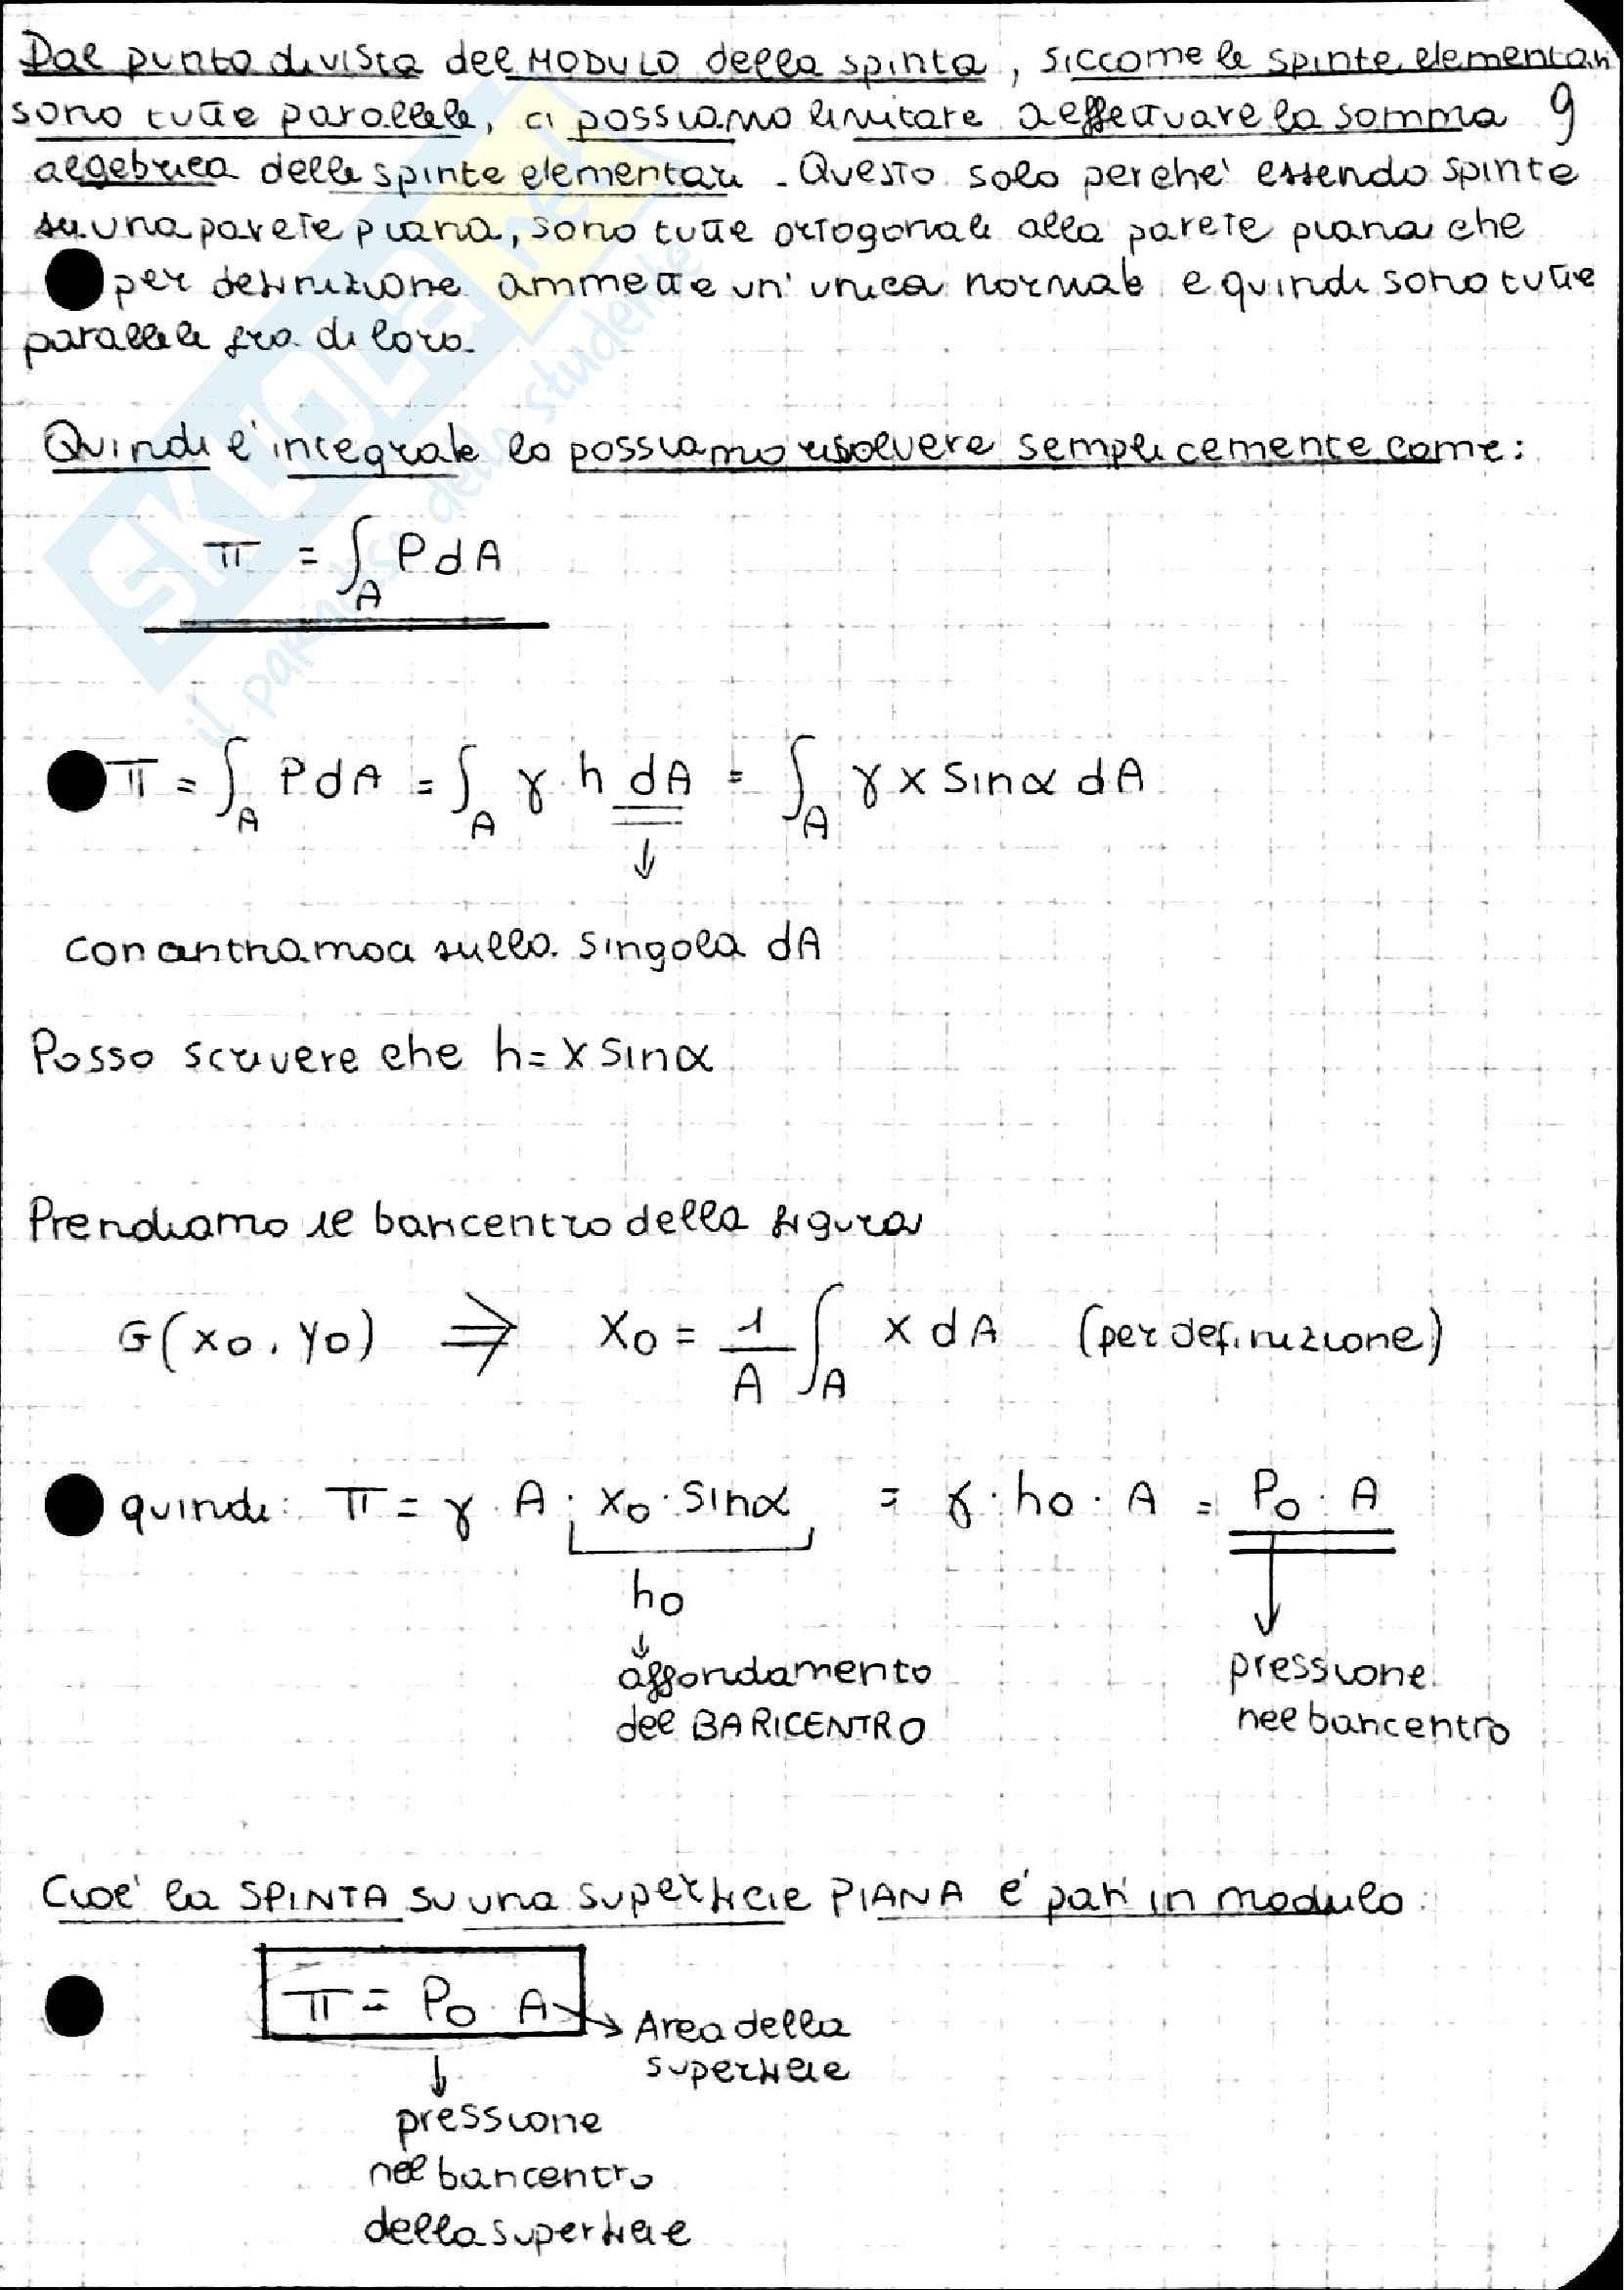 Dal punto di vista del MODULO della spinta, siccome le spinte elementari
sono tutte parallele, ci possiamo limitare a effettuare la somma 9
algebrica delle spinte elementari. Questo solo perche' essendo spinte
su una parete piana, sono tutte ortogonali alla parete piana che
per definizione ammette un' unica normale e quindi sono tutte
parallele fra di loro.
Quindi l'integrale lo possiamo risolvere semplicemente come:
π = ∫_A P dA
π = ∫_A P dA = ∫_A γ · h dA = ∫_A γ x sinα dA
↓
concentriamoci sulla singola dA
Posso scrivere che h = x sinα
Prendiamo il baricentro della figura
G(x0, y0) ⇒ x0 = 1/A ∫_A x dA (per definizione)
quindi: π = γ · A · x0 · sinα = γ · h0 · A = P0 · A
h0
↓
affondamento pressione
del BARICENTRO nel baricentro
Cioe' la SPINTA su una superficie PIANA e' pari in modulo:
π = P0 · A → Area della
superficie
↓
pressione
nel baricentro
della superficie
SKUOLA.net
il paradiso dello studente